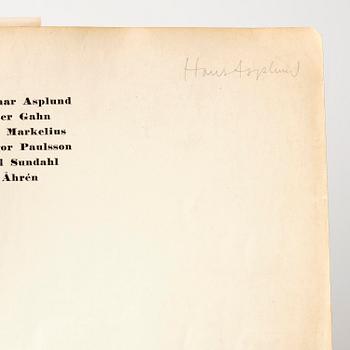 Hans Asplund
nar Asplund
er Gahn
Markelius
or Paulsson
l Sundahl
Åhrén